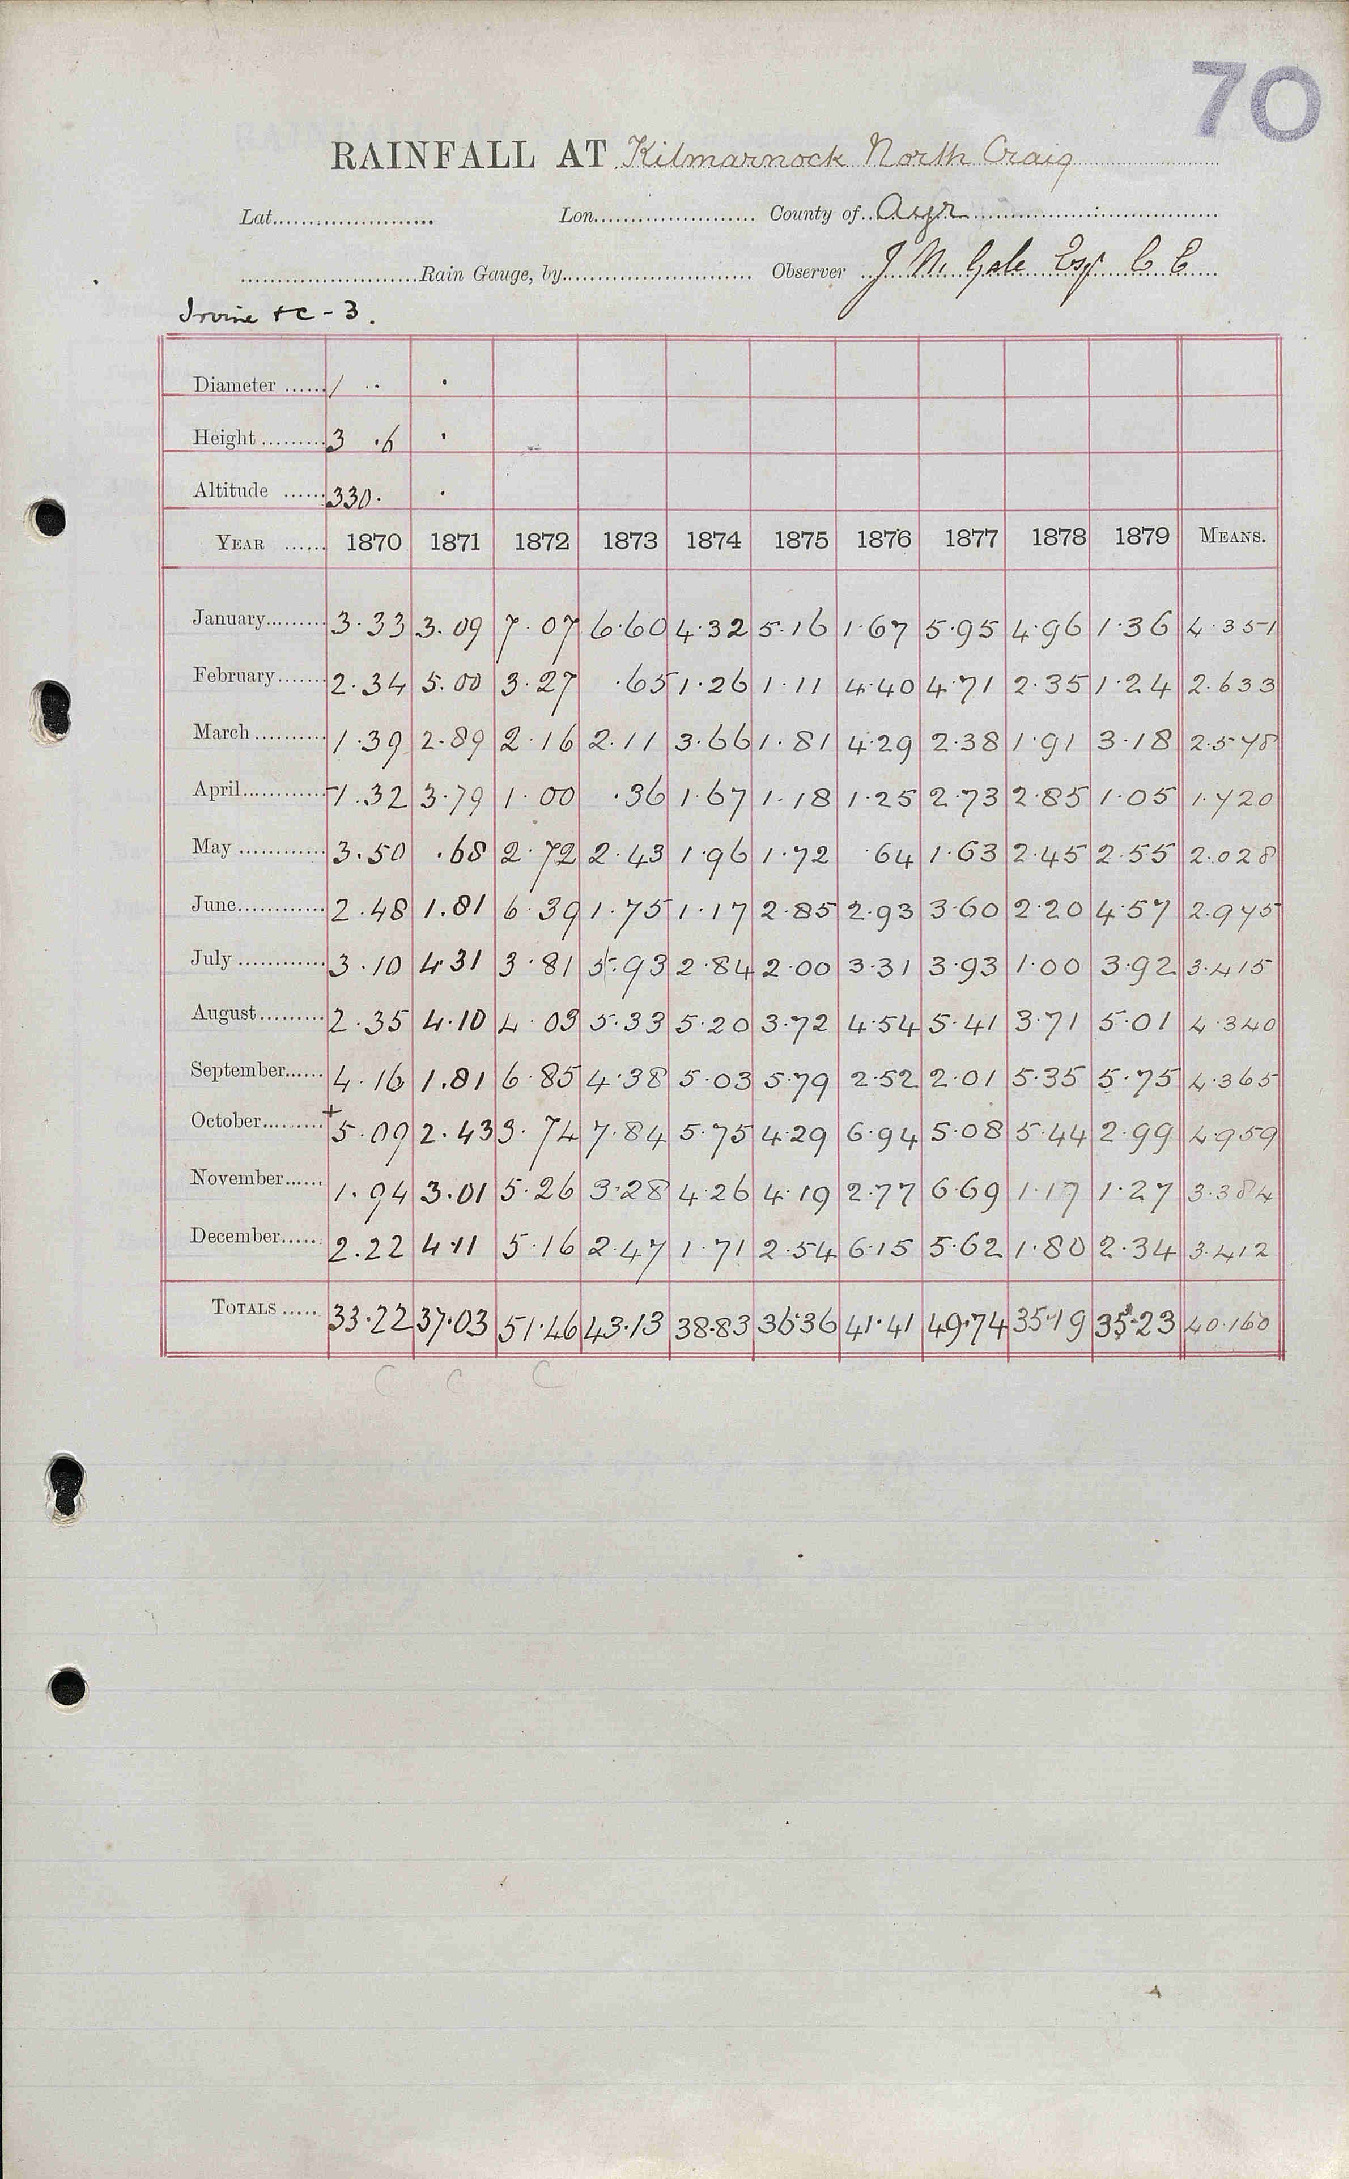 70
RAINFALL AT Kilmarnock North Craig
Lat. Lon. County of Ayr
Rain Gauge, by Observer J M Gale Esq C E
Irvine + c - 3.
Diameter / .. .
Height 3 .6 .
Altitude 330. .
YEAR 1870 1871 1872 1873 1874 1875 1876 1877 1878 1879 MEANS.
January 3.33 3.09 7.07 6.60 4.32 5.16 1.67 5.95 4.96 1.36 4.351
February 2.34 5.00 3.27 .65 1.26 1.11 4.40 4.71 2.35 1.24 2.633
March 1.39 2.89 2.16 2.11 3.66 1.81 4.29 2.38 1.91 3.18 2.578
April -1.32 3.79 1.00 .36 1.67 1.18 1.25 2.73 2.85 1.05 1.720
May 3.50 .68 2.72 2.43 1.96 1.72 .64 1.63 2.45 2.55 2.028
June 2.48 1.81 6.39 1.75 1.17 2.85 2.93 3.60 2.20 4.57 2.975
July 3.10 4.31 3.81 5.93 2.84 2.00 3.31 3.93 1.00 3.92 3.415
August 2.35 4.10 4.03 5.33 5.20 3.72 4.54 5.41 3.71 5.01 4.340
September 4.16 1.81 6.85 4.38 5.03 5.79 2.52 2.01 5.35 5.75 4.365
October + 5.09 2.43 3.74 7.84 5.75 4.29 6.94 5.08 5.44 2.99 4.959
November 1.94 3.01 5.26 3.28 4.26 4.19 2.77 6.69 1.17 1.27 3.384
December 2.22 4.11 5.16 2.47 1.71 2.54 6.15 5.62 1.80 2.34 3.412
TOTALS 33.22 37.03 51.46 43.13 38.83 36.36 41.41 49.74 35.19 35.23 40.160
C C C